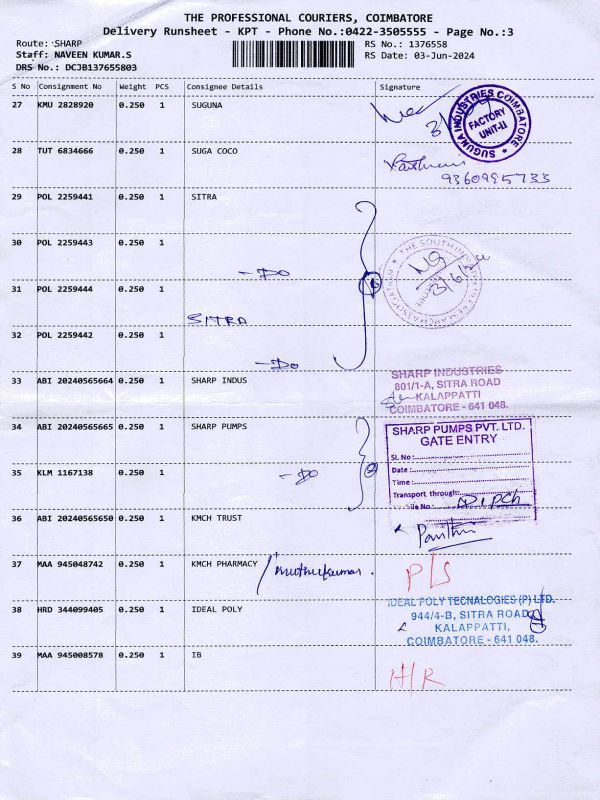 THE PROFESSIONAL COURIERS, COIMBATORE
Delivery Runsheet - KPT - Phone No.:0422-3505555 - Page No.:3
Route: SHARP
RS No.: 1376558
Staff: NAVEEN KUMAR.S
RS Date: 03-Jun-2024
DRS No.: DCJB137655803
S No Consignment No Weight PCS Consignee Details Signature
27 KMU 2828920 0.250 1 SUGUNA
SUGUNA INDUSTRIES COIMBATORE
FACTORY
UNIT-II
28 TUT 6834666 0.250 1 SUGA COCO
9360995733
29 POL 2259441 0.250 1 SITRA
30 POL 2259443 0.250 1
- DO
31 POL 2259444 0.250 1
SITRA
3/6/24
32 POL 2259442 0.250 1
- DO
33 ABI 20240565664 0.250 1 SHARP INDUS
SHARP INDUSTRIES
801/1-A, SITRA ROAD
KALAPPATTI
COIMBATORE - 641 048.
34 ABI 20240565665 0.250 1 SHARP PUMPS
SHARP PUMPS PVT. LTD.
GATE ENTRY
Sl. No :
Date :
Time :
Transport through:
35 KLM 1167138 0.250 1
- DO
36 ABI 20240565650 0.250 1 KMCH TRUST
37 MAA 945048742 0.250 1 KMCH PHARMACY
Muthukumar.
P/S
38 HRD 344099405 0.250 1 IDEAL POLY
IDEAL POLY TECNALOGIES (P) LTD.
944/4-B, SITRA ROAD
KALAPPATTI,
COIMBATORE - 641 048.
39 MAA 945008578 0.250 1 IB
H/R